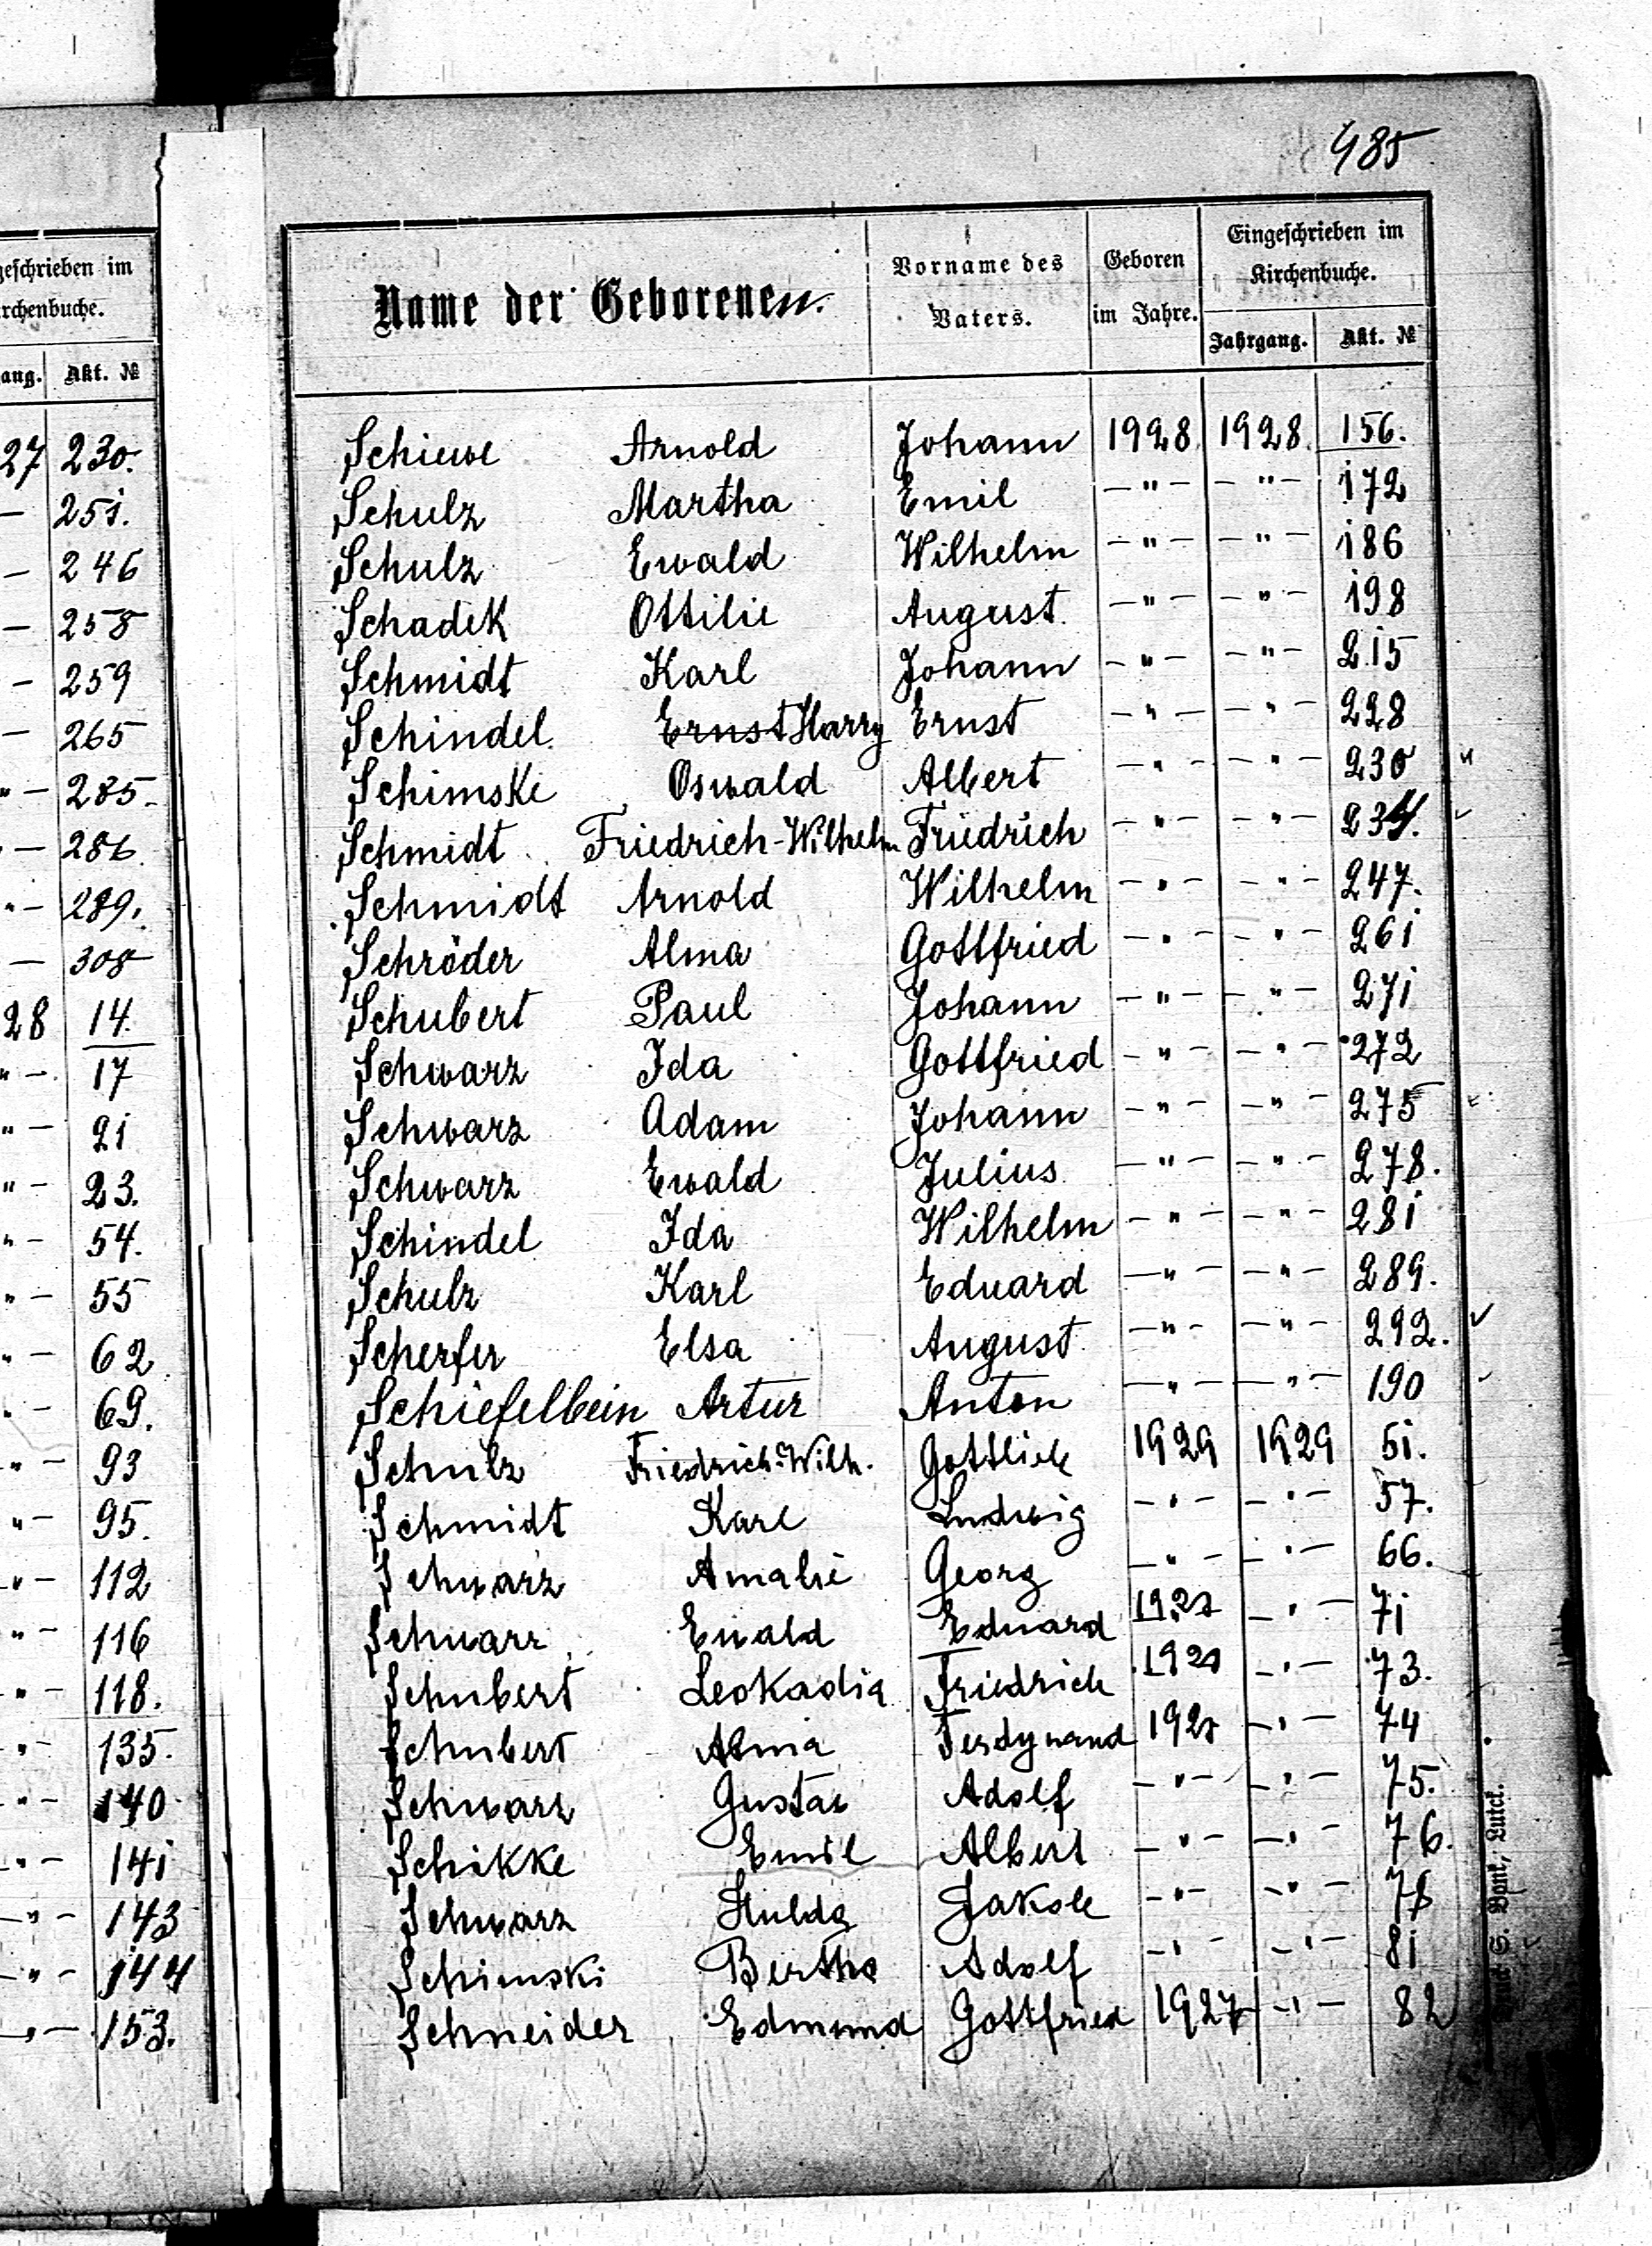 485
geschrieben im
rchenbuche.
ang. Akt. №
27 230.
— 251.
— 246
— 258
— 259
— 265
" — 285.
— 286.
" — 289.
— 308
28 14.
" — 17
" — 21
" — 23.
" — 54.
" — 55
" — 62
" — 69.
" — 93
" — 95.
" — 112
" — 116
" — 118.
" — 135.
" — 140
" — 141
— " — 143
— " — 144
— " — 153.
Name der Geborenen. Vorname des Vaters. Geboren im Jahre. Eingeschrieben im Kirchenbuche.
Jahrgang. Akt. №
Schiewe Arnold Johann 1928 1928. 156.
Schulz Martha Emil — " — — " — 172
Schulz Ewald Wilhelm — " — — " — 186
Schadek Ottilie August. — " — — " — 198
Schmidt Karl Johann — " — — " — 215
Schindel. Ernst Harry Ernst — " — — " — 228
Schimske Oswald Albert — " — — " — 230
Schmidt Friedrich-Wilhelm Friedrich — " — — " — 234.
Schmidt Arnold Wilhelm — " — — " — 247.
Schröder Alma Gottfried — " — — " — 261
Schubert Paul Johann — " — — " — 271
Schwarz Ida Gottfried — " — — " — 272
Schwarz Adam Johann — " — — " — 275
Schwarz Ewald Julius — " — — " — 278.
Schindel Ida Wilhelm — " — — " — 281
Schulz Karl Eduard — " — — " — 289.
Scherfer Elsa August. — " — — " — 292.
Schiefelbein Artur Anton — " — — " — 190
Schulz Friedrich-Wilh. Gottlieb 1929 1929 51.
Schmidt Karl Ludwig — " — — " — 57.
Schwarz Amalie Georg — " — — " — 66.
Schwarz Ewald Eduard — " — 71
Schubert Leokadia Friedrich — " — 73.
Schubert Alma Ferdynand — " — 74
Schwarz Gustav Adolf — " — — " — 75.
Schikke Emil Albert — " — — " — 76.
Schwarz Hulda Jakob — " — — " — 78
Schimski Bertha Adolf — " — — " — 81
Schneider Edmund Gottfried 1927 — " — 82